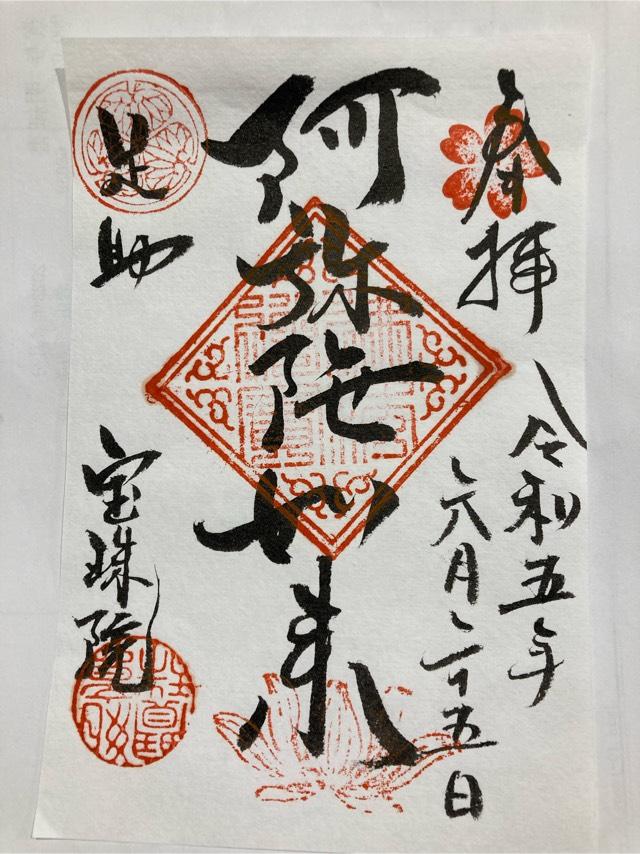 奉拝
令和五年
六月二十五日
阿弥陀如来
足助
宝珠院